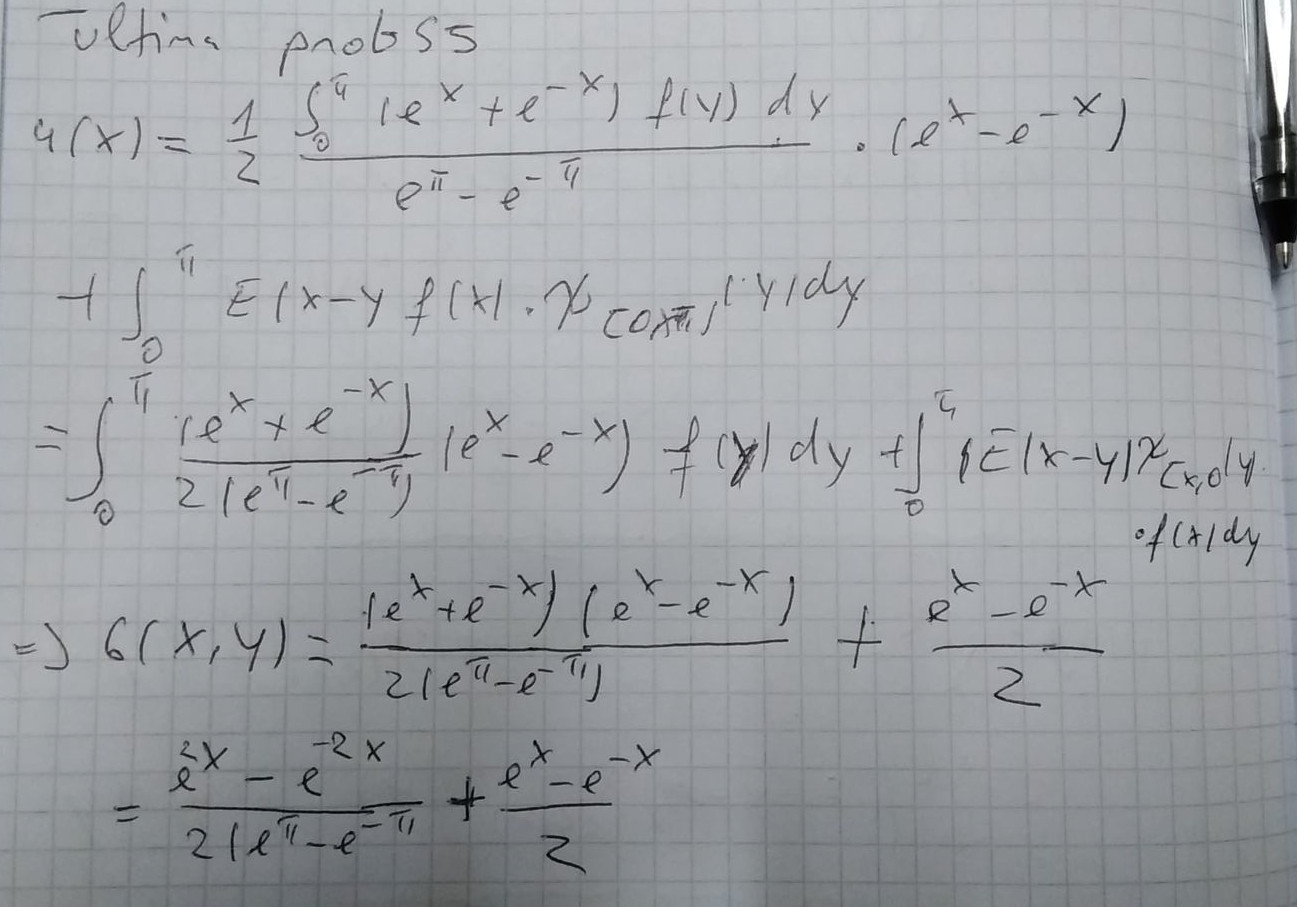 Ultima prob S5
u(x) = 1/2 ∫_0^π (e^x + e^{-x}) f(y) dy / (e^π - e^{-π}) · (e^x - e^{-x})
+ ∫_0^π E(x-y f(x) · χ_{[0xπ]}(y) dy
= ∫_0^π (e^x + e^{-x}) / 2(e^π - e^{-π}) (e^x - e^{-x}) f(y) dy + ∫_0^π (E(x-y) χ_{[x,0]}y
· f(x) dy
=> G(x,y) = (e^x + e^{-x}) (e^x - e^{-x}) / 2(e^π - e^{-π}) + (e^x - e^{-x}) / 2
= (e^{2x} - e^{-2x}) / 2(e^π - e^{-π} + (e^x - e^{-x}) / 2